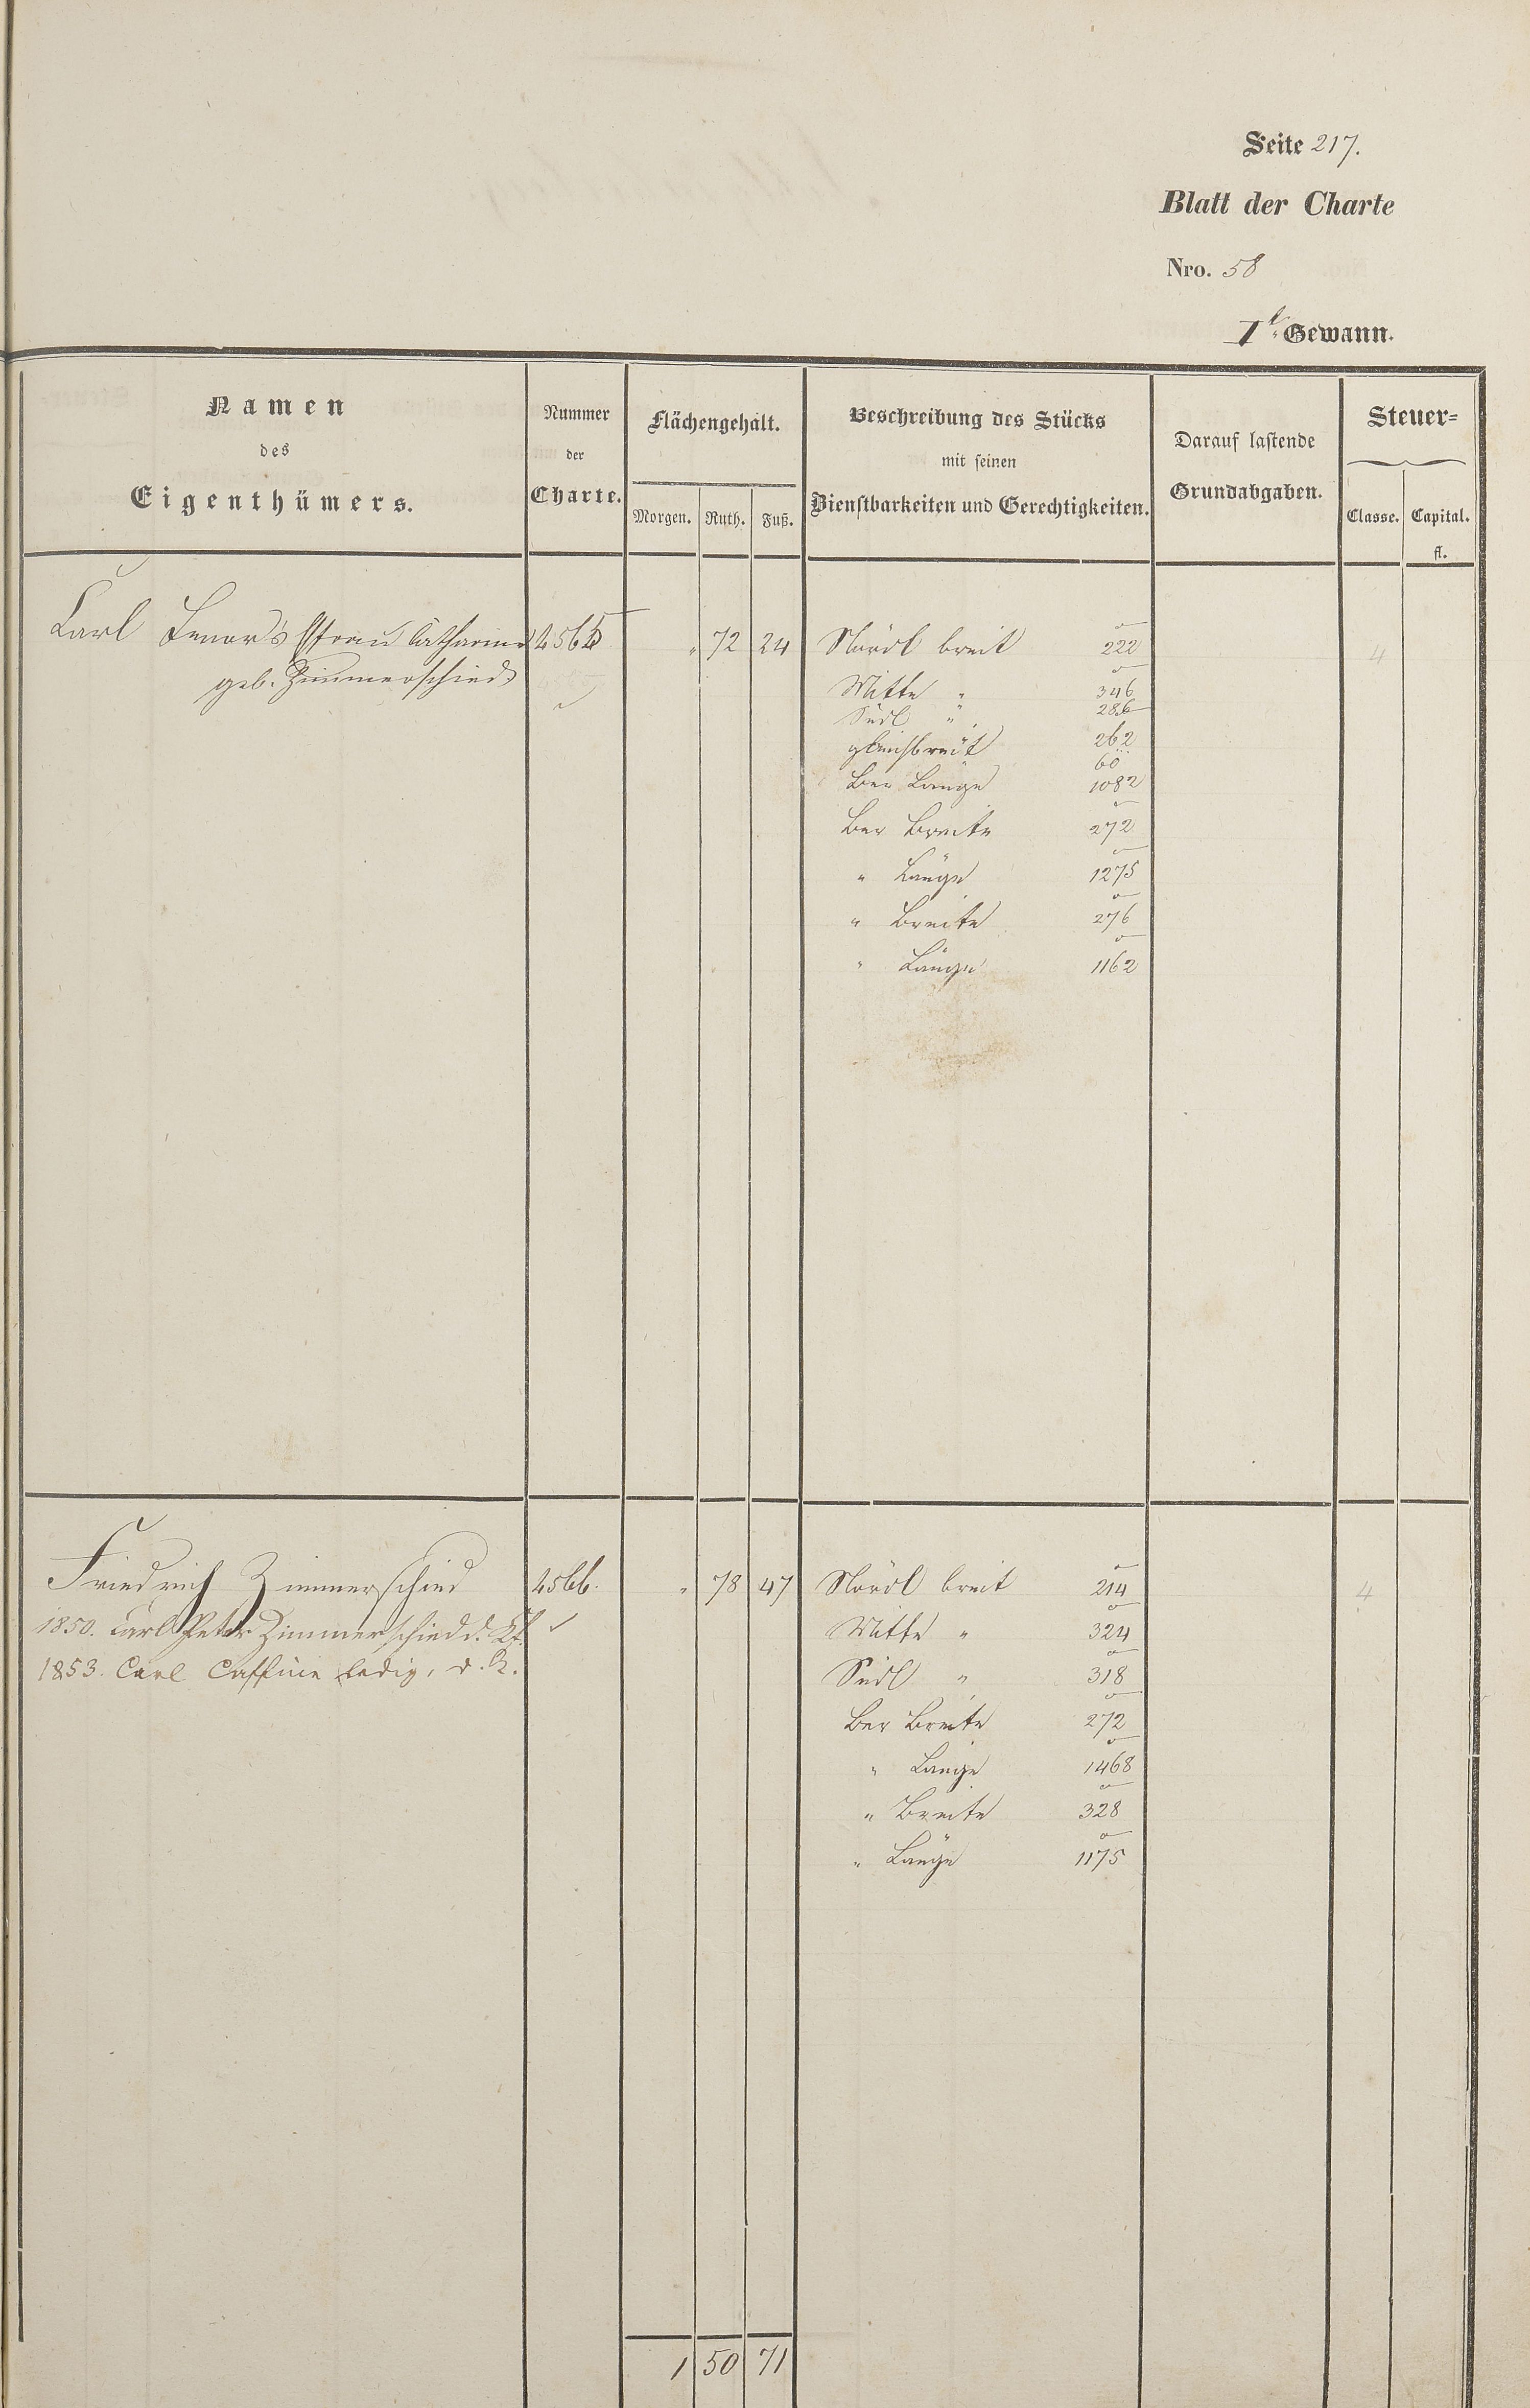 Seite 217.
Blatt der Charte
Nro. 58
1t. Gewann.
Namen
des
Eigenthümers.
Nummer
der
Charte.
Flächengehalt.
Morgen. Ruth. Fuß.
Beschreibung des Stücks
mit seinen
Dienstbarkeiten und Gerechtigkeiten.
Darauf lastende
Grundabgaben.
Steuer=
Classe. Capital.
fl.
Carl Frau Catharine 4565 " 72 24 Nördl breit 222 4
geb. Zimmerschied
Mitte " 346
Südl " 286
gleichbreit 262
60
Ber Länge 1082
Ber Breite 272
" Länge 1275
" Breite 276
" Länge 1162
Friedrich Zimmerschied 4566. " 78 47 Nördl breit 214 4
1850. Carl Peter Zimmerschied d. Kf. Mitte " 324
1853. Carl ledig, d. K. Südl " 318
Ber Breite 272
" Länge 1468
" Breite 328
" Länge 1175
1 50 71